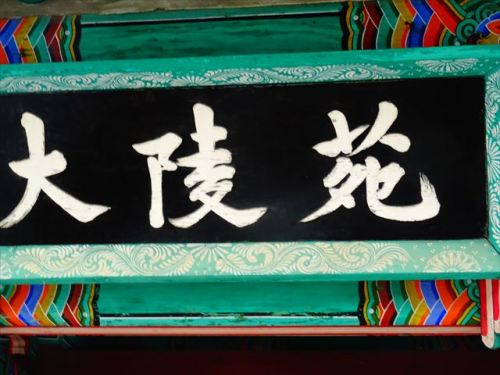 大陵苑